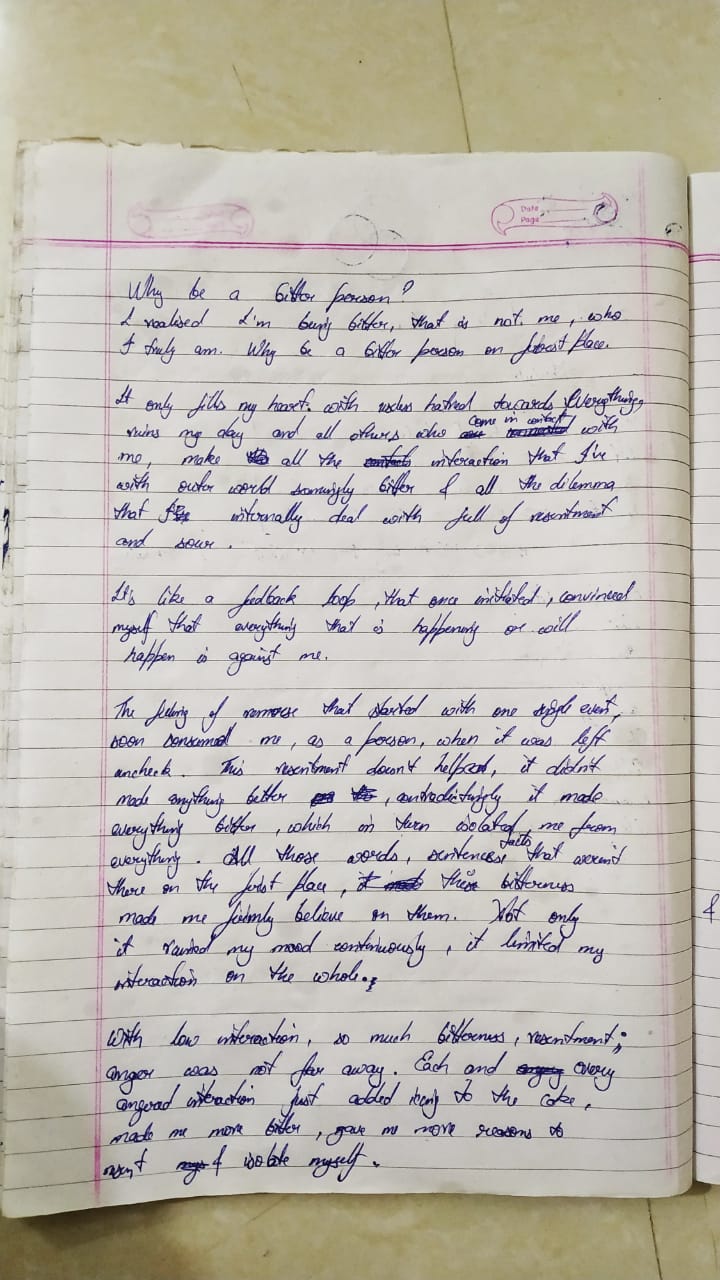 Date
Page
Why be a bitter person?
I realised I'm being bitter, that is not me, who
I truly am. Why be a bitter person on first place.
It only fills my heart. with useless hatred towards Everything,
ruins my day and all others who come in contact with
me, make all the interaction that I've
with outer world seemingly bitter & all the dilemma
that I internally deal with full of resentment
and sour.
It's like a feedback loop, that once initiated, convinced
myself that everything that is happening or will
happen is against me.
The feeling of remorse that started with one single event,
soon consumed me, as a person, when it was left
uncheck. This resentment doesn't helped, it didn't
made anything better, contradictingly it made
everything bitter, which in turn isolated me from
everything. All those words, sentences facts that weren't
there on the first place, this bitterness
made me firmly believe on them. Not only
it ruined my mood continuously, it limited my
interaction on the whole.
With low interaction, so much bitterness, resentment;
anger was not far away. Each and every
angered interaction just added icing to the cake,
made me more bitter, gave me more reasons to
resent & isolate myself.
&